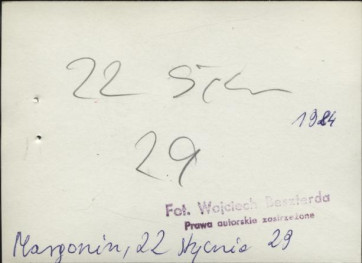 22 Stycz
1984
29
Fot. Wojciech Beszterda
Prawa autorskie zastrzeżone
Margonin, 22 stycznia 29